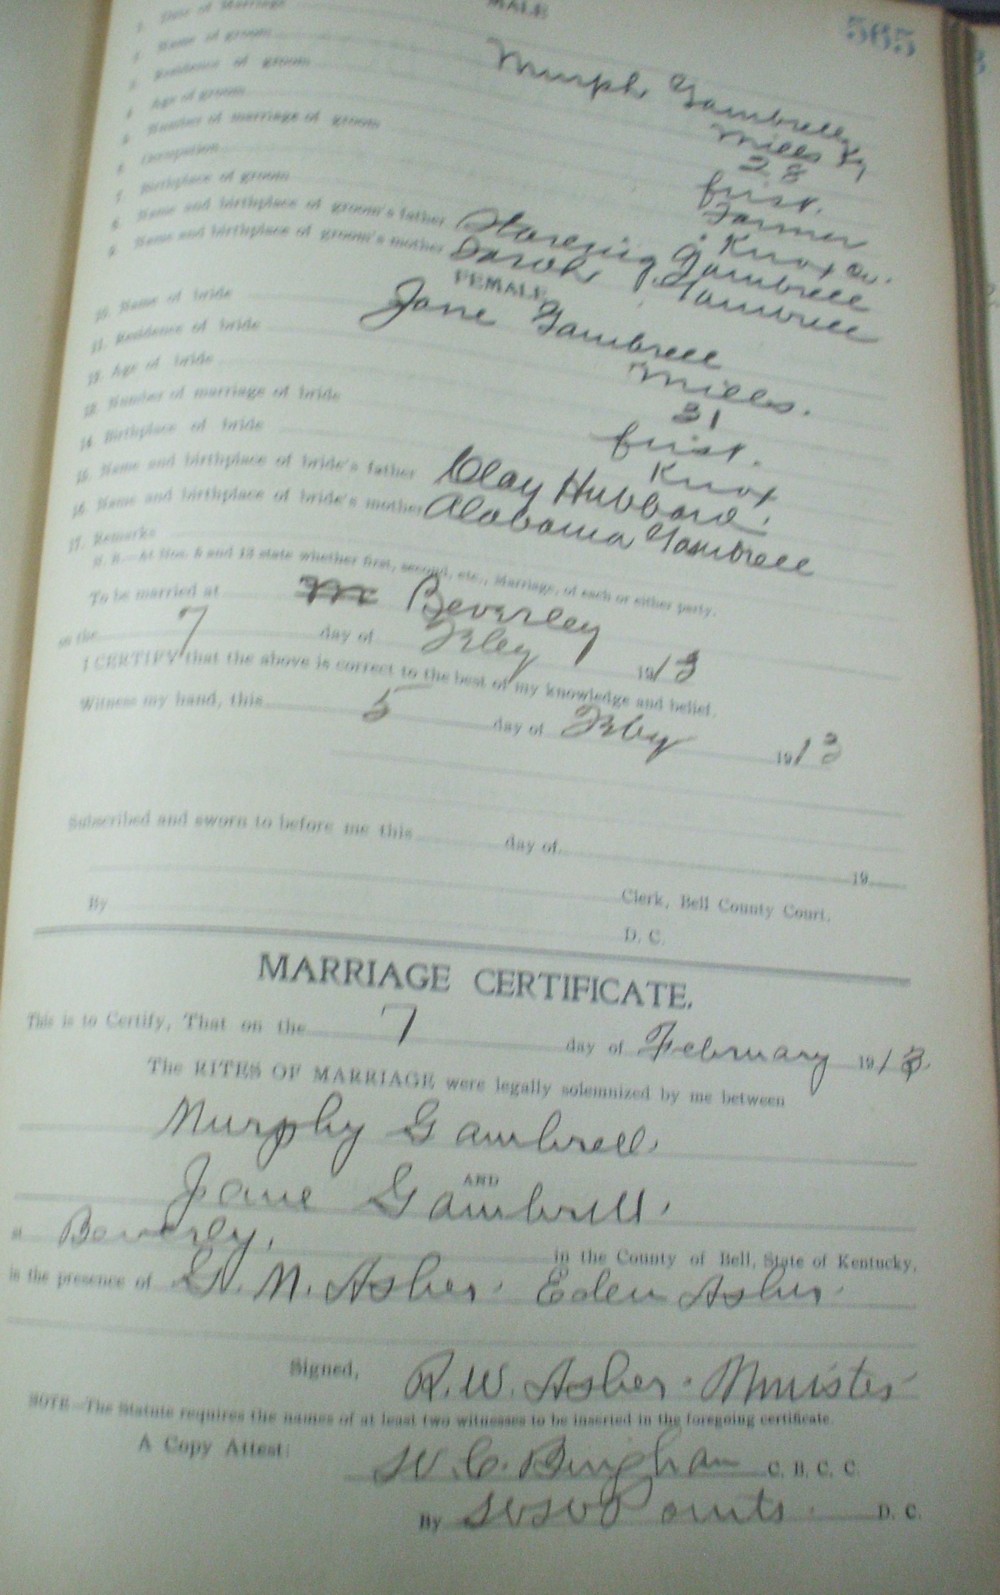 MALE
565
1. Date of Marriage
2. Name of groom Murph Gambrell
3. Residence of groom Mills Ky
4. Age of groom 28
5. Number of marriage of groom first.
6. Occupation Farmer
7. Birthplace of groom Knox Co.
8. Name and birthplace of groom's father Gambrell
9. Name and birthplace of groom's mother Sarah Gambrell
FEMALE
10. Name of bride Jane Gambrell
11. Residence of bride Mills.
12. Age of bride 31
13. Number of marriage of bride first.
14. Birthplace of bride Knox
15. Name and birthplace of bride's father Clay Hubbard.
16. Name and birthplace of bride's mother Alabama Gambrell
17. Remarks
N. B.—At Nos. 5 and 13 state whether first, second, etc., Marriage, of each or either party.
To be married at Beverley
on the 7 day of Feby 1913
I CERTIFY that the above is correct to the best of my knowledge and belief.
Witness my hand, this 5 day of Feby 1913
Subscribed and sworn to before me this day of 19
Clerk, Bell County Court.
By D. C.
MARRIAGE CERTIFICATE.
This is to Certify, That on the 7 day of February 1913.
The RITES OF MARRIAGE were legally solemnized by me between
Murphy Gambrell
AND
Jane Gambrell
at Beverly, in the County of Bell, State of Kentucky,
in the presence of G. M. Asher. Eden Asher.
Signed, R. W. Asher. Minister
NOTE—The Statute requires the names of at least two witnesses to be inserted in the foregoing certificate.
A Copy Attest: W. C. Bingham C. B. C. C.
By D. C.